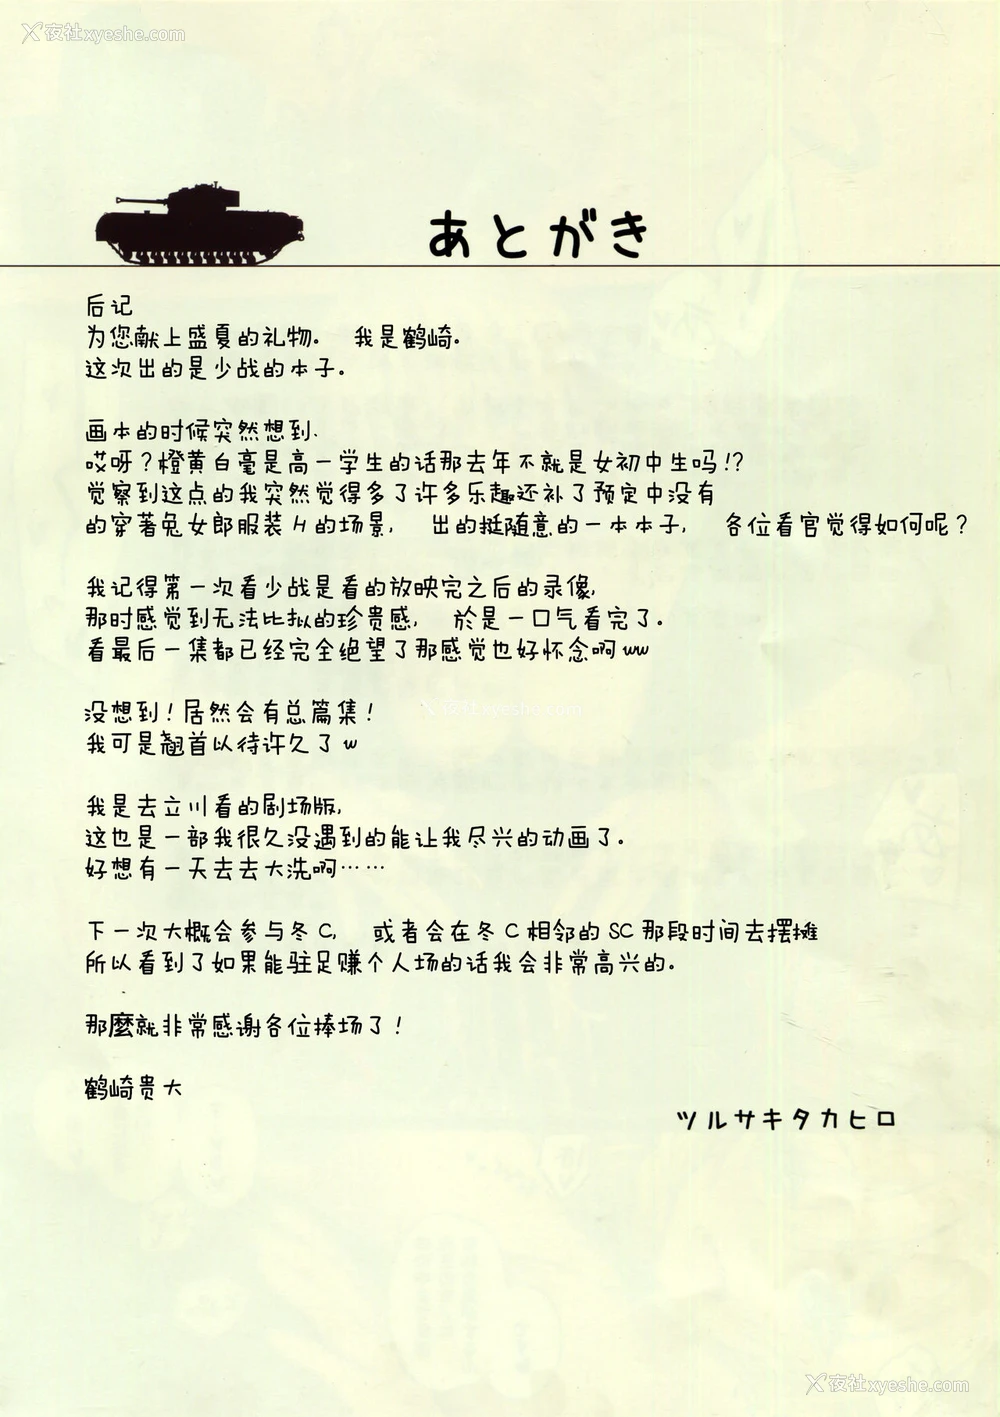 夜社xyeshe.com
あとがき
后记
为您献上盛夏的礼物。 我是鹤崎。
这次出的是少战的本子。
画本的时候突然想到、
哎呀？橙黄白毫是高一学生的话那去年不就是女初中生吗!?
觉察到这点的我突然觉得多了许多乐趣还补了预定中没有
的穿著兔女郎服装H的场景， 出的挺随意的一本本子， 各位看官觉得如何呢？
我记得第一次看少战是看的放映完之后的录像，
那时感觉到无法比拟的珍贵感， 於是一口气看完了。
看最后一集都已经完全绝望了那感觉也好怀念啊ww
没想到！居然会有总篇集！
我可是翘首以待许久了w
夜社xyeshe.com
我是去立川看的剧场版，
这也是一部我很久没遇到的能让我尽兴的动画了。
好想有一天去去大洗啊……
下一次大概会参与冬C， 或者会在冬C相邻的SC那段时间去摆摊
所以看到了如果能驻足赚个人场的话我会非常高兴的。
那麼就非常感谢各位捧场了！
鹤崎贵大
ツルサキタカヒロ
夜社xyeshe.com